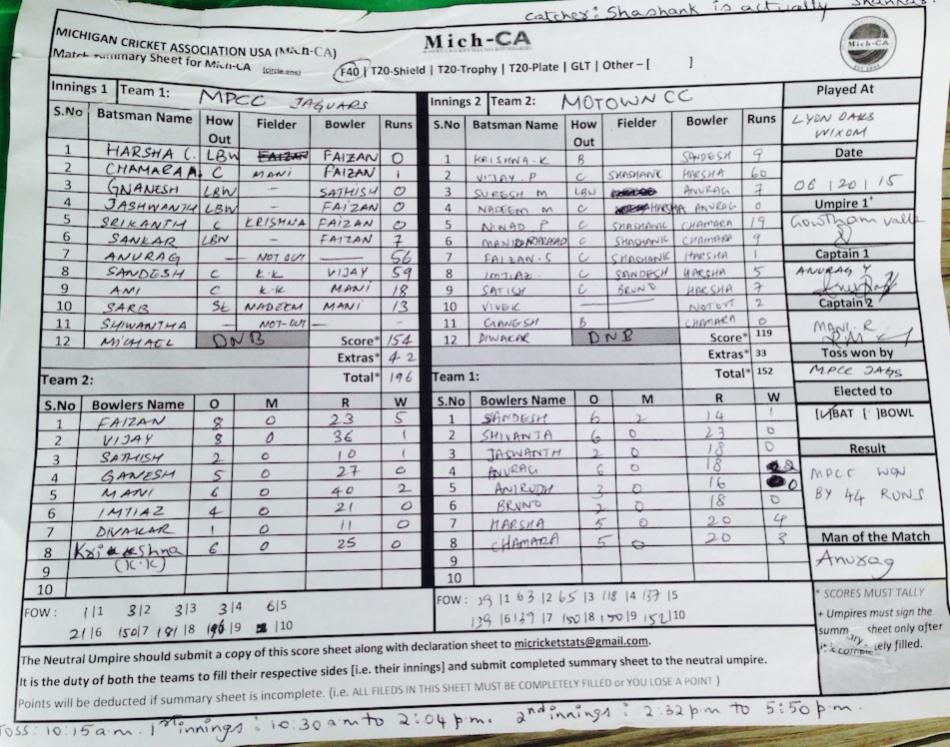 catcher: Shashank is actually
MICHIGAN CRICKET ASSOCIATION USA (Mich-CA)
Match summary Sheet for Mich-CA (circle one)
Mich-CA
Mich-CA
F40 | T20-Shield | T20-Trophy | T20-Plate | GLT | Other – [ ]
Innings 1 Team 1: MPCC JAGUARS
S.No Batsman Name How Out Fielder Bowler Runs
1 HARSHA C. LBW FAIZAN FAIZAN 0
2 CHAMARAA. C MANI FAIZAN 1
3 GNANESH LBW – SATHISH 0
4 JASHWANTH LBW – FAIZAN 0
5 SRIKANTH C KRISHNA FAIZAN 0
6 SANKAR LBW – FAIZAN 7
7 ANURAG – NOT OUT – 56
8 SANDESH C K.K VIJAY 59
9 AMI C K.K MANI 18
10 SARB St NADEEM MANI 13
11 SHIWANTHA – NOT-OUT – –
12 MICHAEL DNB Score* 154
Extras* 42
Total* 196
Innings 2 Team 2: MOTOWN CC
S.No Batsman Name How Out Fielder Bowler Runs
1 KRISHNA-K B SANDESH 9
2 VIJAY.P C SHASHANK HARSHA 60
3 SURESH M LBW ANURAG 7
4 NADEEM M C HARSHA ANURAG 0
5 NINAD P C SHASHANK CHAMARA 19
6 C SHASHANK CHAMARA 9
7 FAIZAN-S C SHASHANK HARSHA 1
8 IMTIAZ C SANDESH HARSHA 5
9 SATISH C BRUNO HARSHA 7
10 VIVEK NOTOUT 2
11 GANGESH B CHAMARA 0
12 DIWAKAR DNB Score* 119
Extras* 33
Total* 152
Team 2:
S.No Bowlers Name O M R W
1 FAIZAN 8 0 23 5
2 VIJAY 8 0 36 1
3 SATHISH 2 0 10 1
4 GANESH 5 0 27 0
5 MANI 6 0 40 2
6 IMTIAZ 4 0 21 0
7 DIVAKAR 1 0 11 0
8 Krishna (K.K) 6 0 25 0
9
10
Team 1:
S.No Bowlers Name O M R W
1 SANDESH 6 2 14 1
2 SHIVANTA 6 0 23 0
3 JASWANTH 2 0 18 0
4 ANURAG 6 0 18 2
5 ANIRUDH 3 0 16 0
6 BRUNO 2 0 18 0
7 HARSHA 5 0 20 4
8 CHAMARA 5 0 20 3
9
10
FOW : 1|1 3|2 3|3 3|4 6|5
21|6 150|7 181|8 196|9 |10
FOW : 39|1 63|2 65|3 118|4 137|5
139|6 139|7 150|8 150|9 152|10
Played At
LYON OAKS
WIXOM
Date
06|20|15
Umpire 1*
Gowtham valle
Captain 1
ANURAG Y
Captain 2
MANI.R.
Toss won by
MPCC JAGS
Elected to
[✓]BAT [ ]BOWL
Result
MPCC WON
BY 44 RUNS
Man of the Match
Anurag
* SCORES MUST TALLY
+ Umpires must sign the
summary sheet only after
it is completely filled.
The Neutral Umpire should submit a copy of this score sheet along with declaration sheet to micricketstats@gmail.com.
It is the duty of both the teams to fill their respective sides [i.e. their innings] and submit completed summary sheet to the neutral umpire.
Points will be deducted if summary sheet is incomplete. (i.e. ALL FILEDS IN THIS SHEET MUST BE COMPLETELY FILLED or YOU LOSE A POINT )
TOSS: 10:15 a.m. 1st innings: 10:30 am to 2:04 p.m. 2nd innings: 2:32 pm to 5:50 p.m.